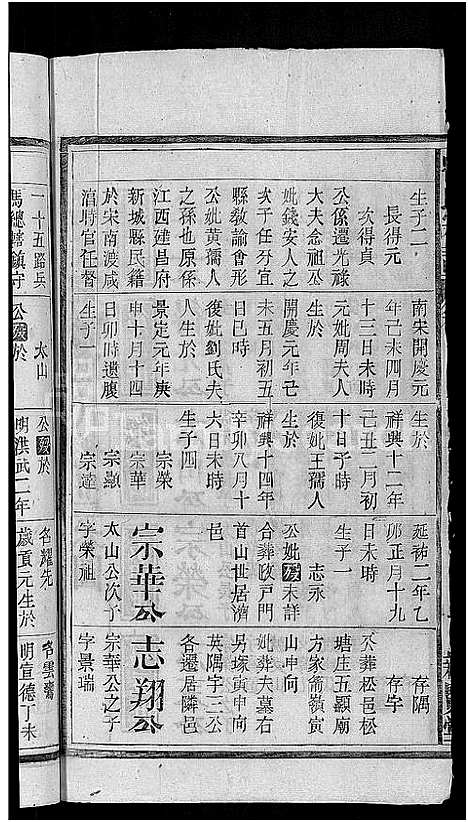 生子二
長得元
次得貞
公係遷光祿
大夫念祖丞
妣錢安人之
子前任分宜
縣敎諭會彤
公妣黃孺人
之孫也原係
江西建昌府
新城縣民籍
於宋南渡咸
淳時官任督
一十五路兵
馬總轄鎮守
南宋開慶元
年己未四月
十三日未時
元妣周夫人
開慶元年己
未五月初五
日巳時
復妣劉氏夫
人生於
景定元年庚
申十月十四
日卯時遺腹
生子一
太山
公歿於
生於
祥興十二年
己丑二月初
十日子時
復妣王孺人
生於
祥興十四年
辛卯八月十
六日未時
生子四
宗榮
宗華
宗顯
宗達
公歿於
明洪武二年
延祐二年乙
卯正月十九
日未時
生子一
志永
公妣歿未詳
合葬
首山世居濟
邑
宗華公
太山公次子
字榮祖
名耀先
歲貢元生於
存隅
存宇
公葬松邑松
塘庄五顯廟
方家崙嶺寅
山申向
妣葬夫墓右
另塚寅申向
英隅宇三公
各遷居隣邑
志翔公
宗華公之子
字景瑞
字雲鶱
明宣德丁未